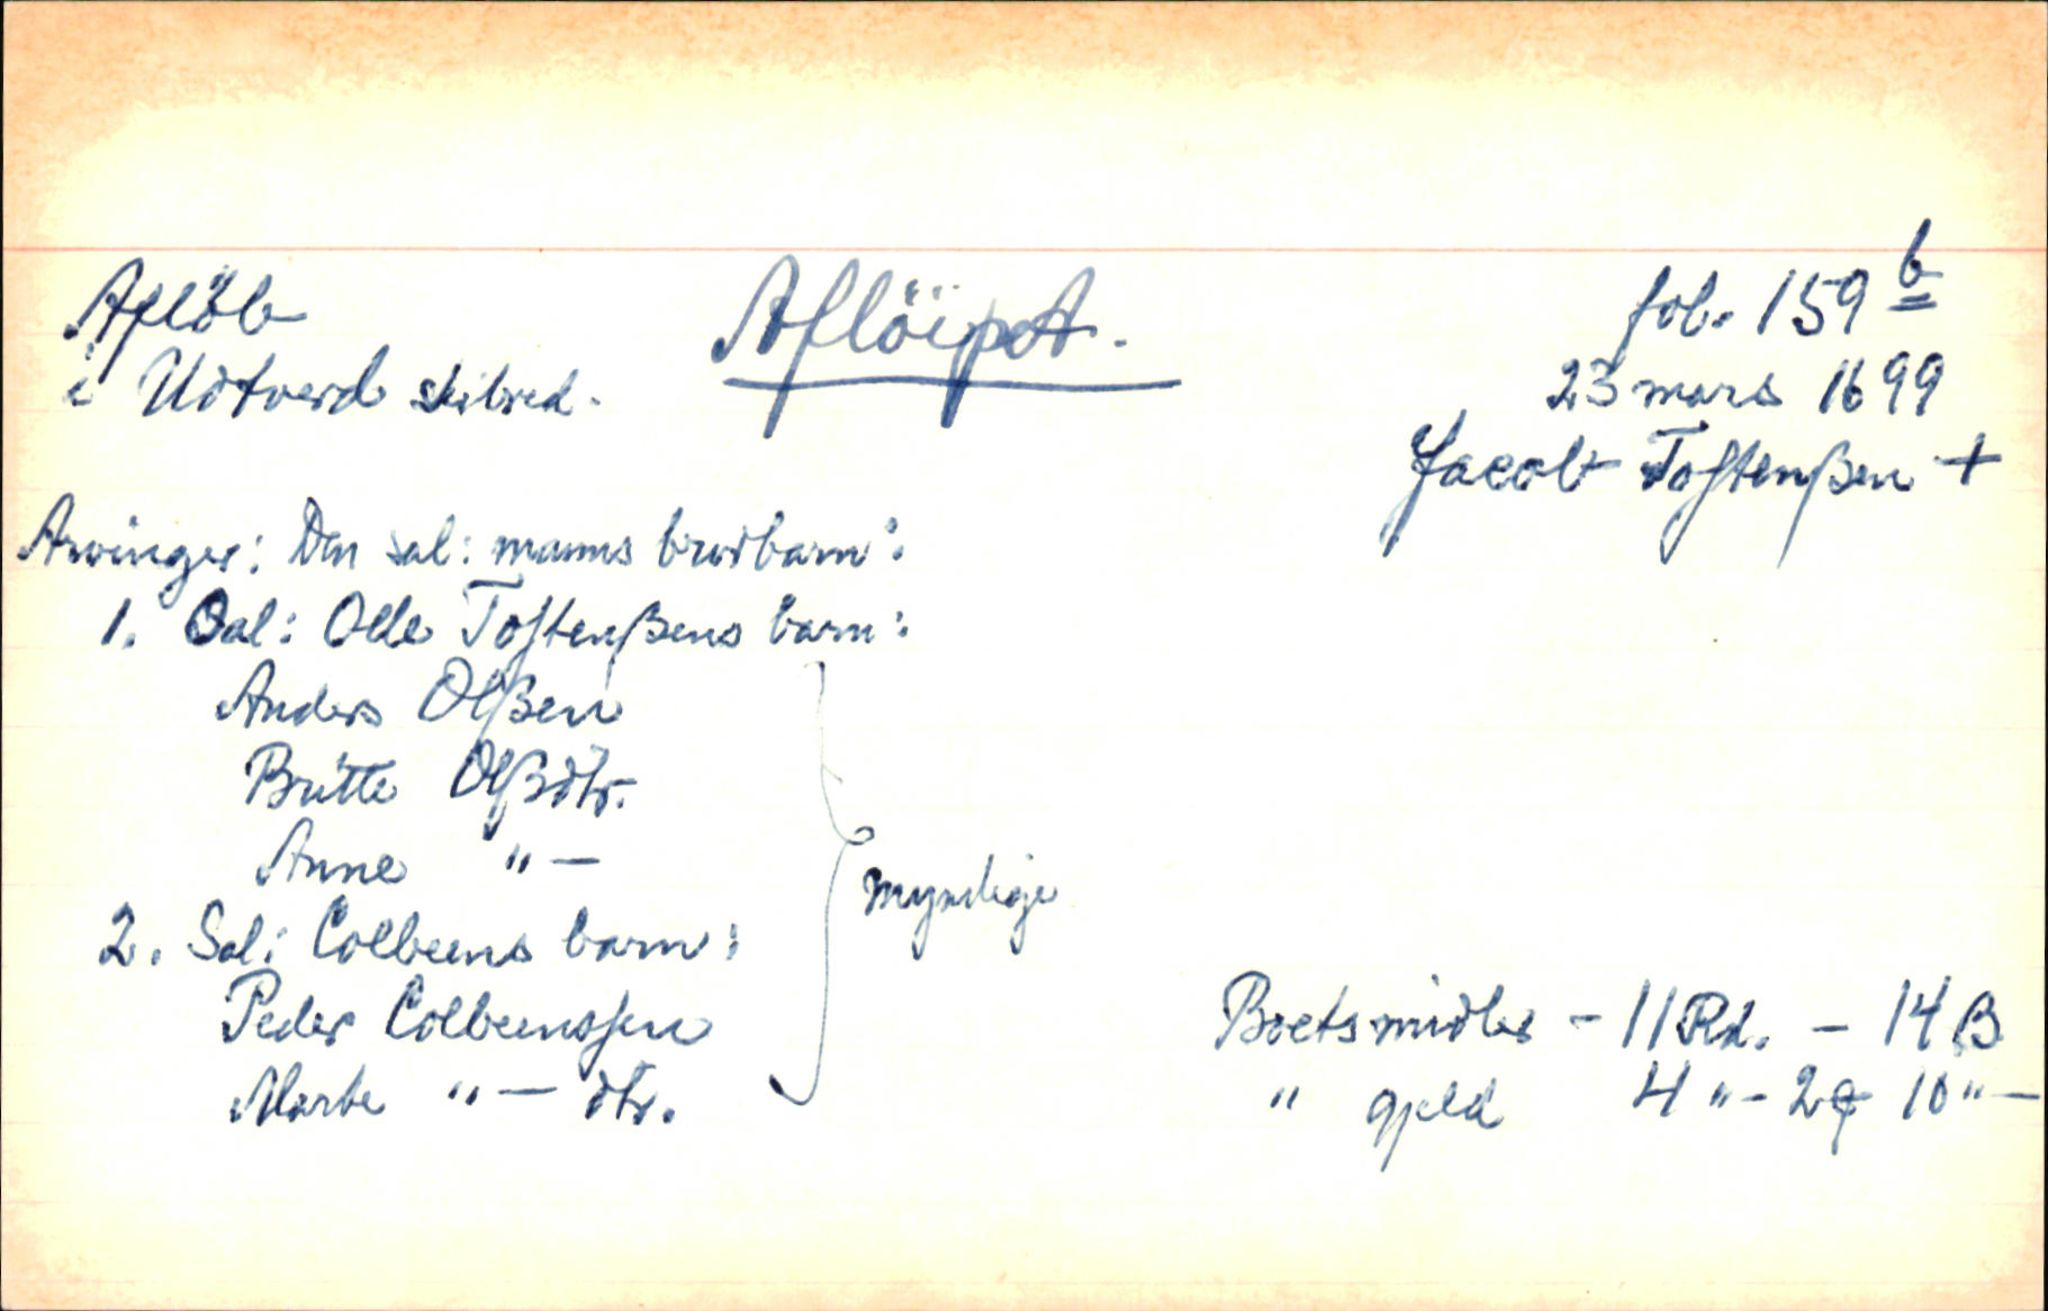 Aflöb
i Udtverd skibred.
Aflöipet.
fol. 159 b
23 mars 1699
Jacob Tostenßen +
Arvinger: Den sal: manns brorbarn:
1. Sal: Olle Tostenßens barn:
Anders Olßen
Britte Olßdtr.
Anne " —
2. Sal: Colbeens barn:
Peder Colbeenssen
Marte " — dtr.
myndige
Boets midler - 11 Rd. - 14 ß
" gjeld 4 " - 2 q 10 " —